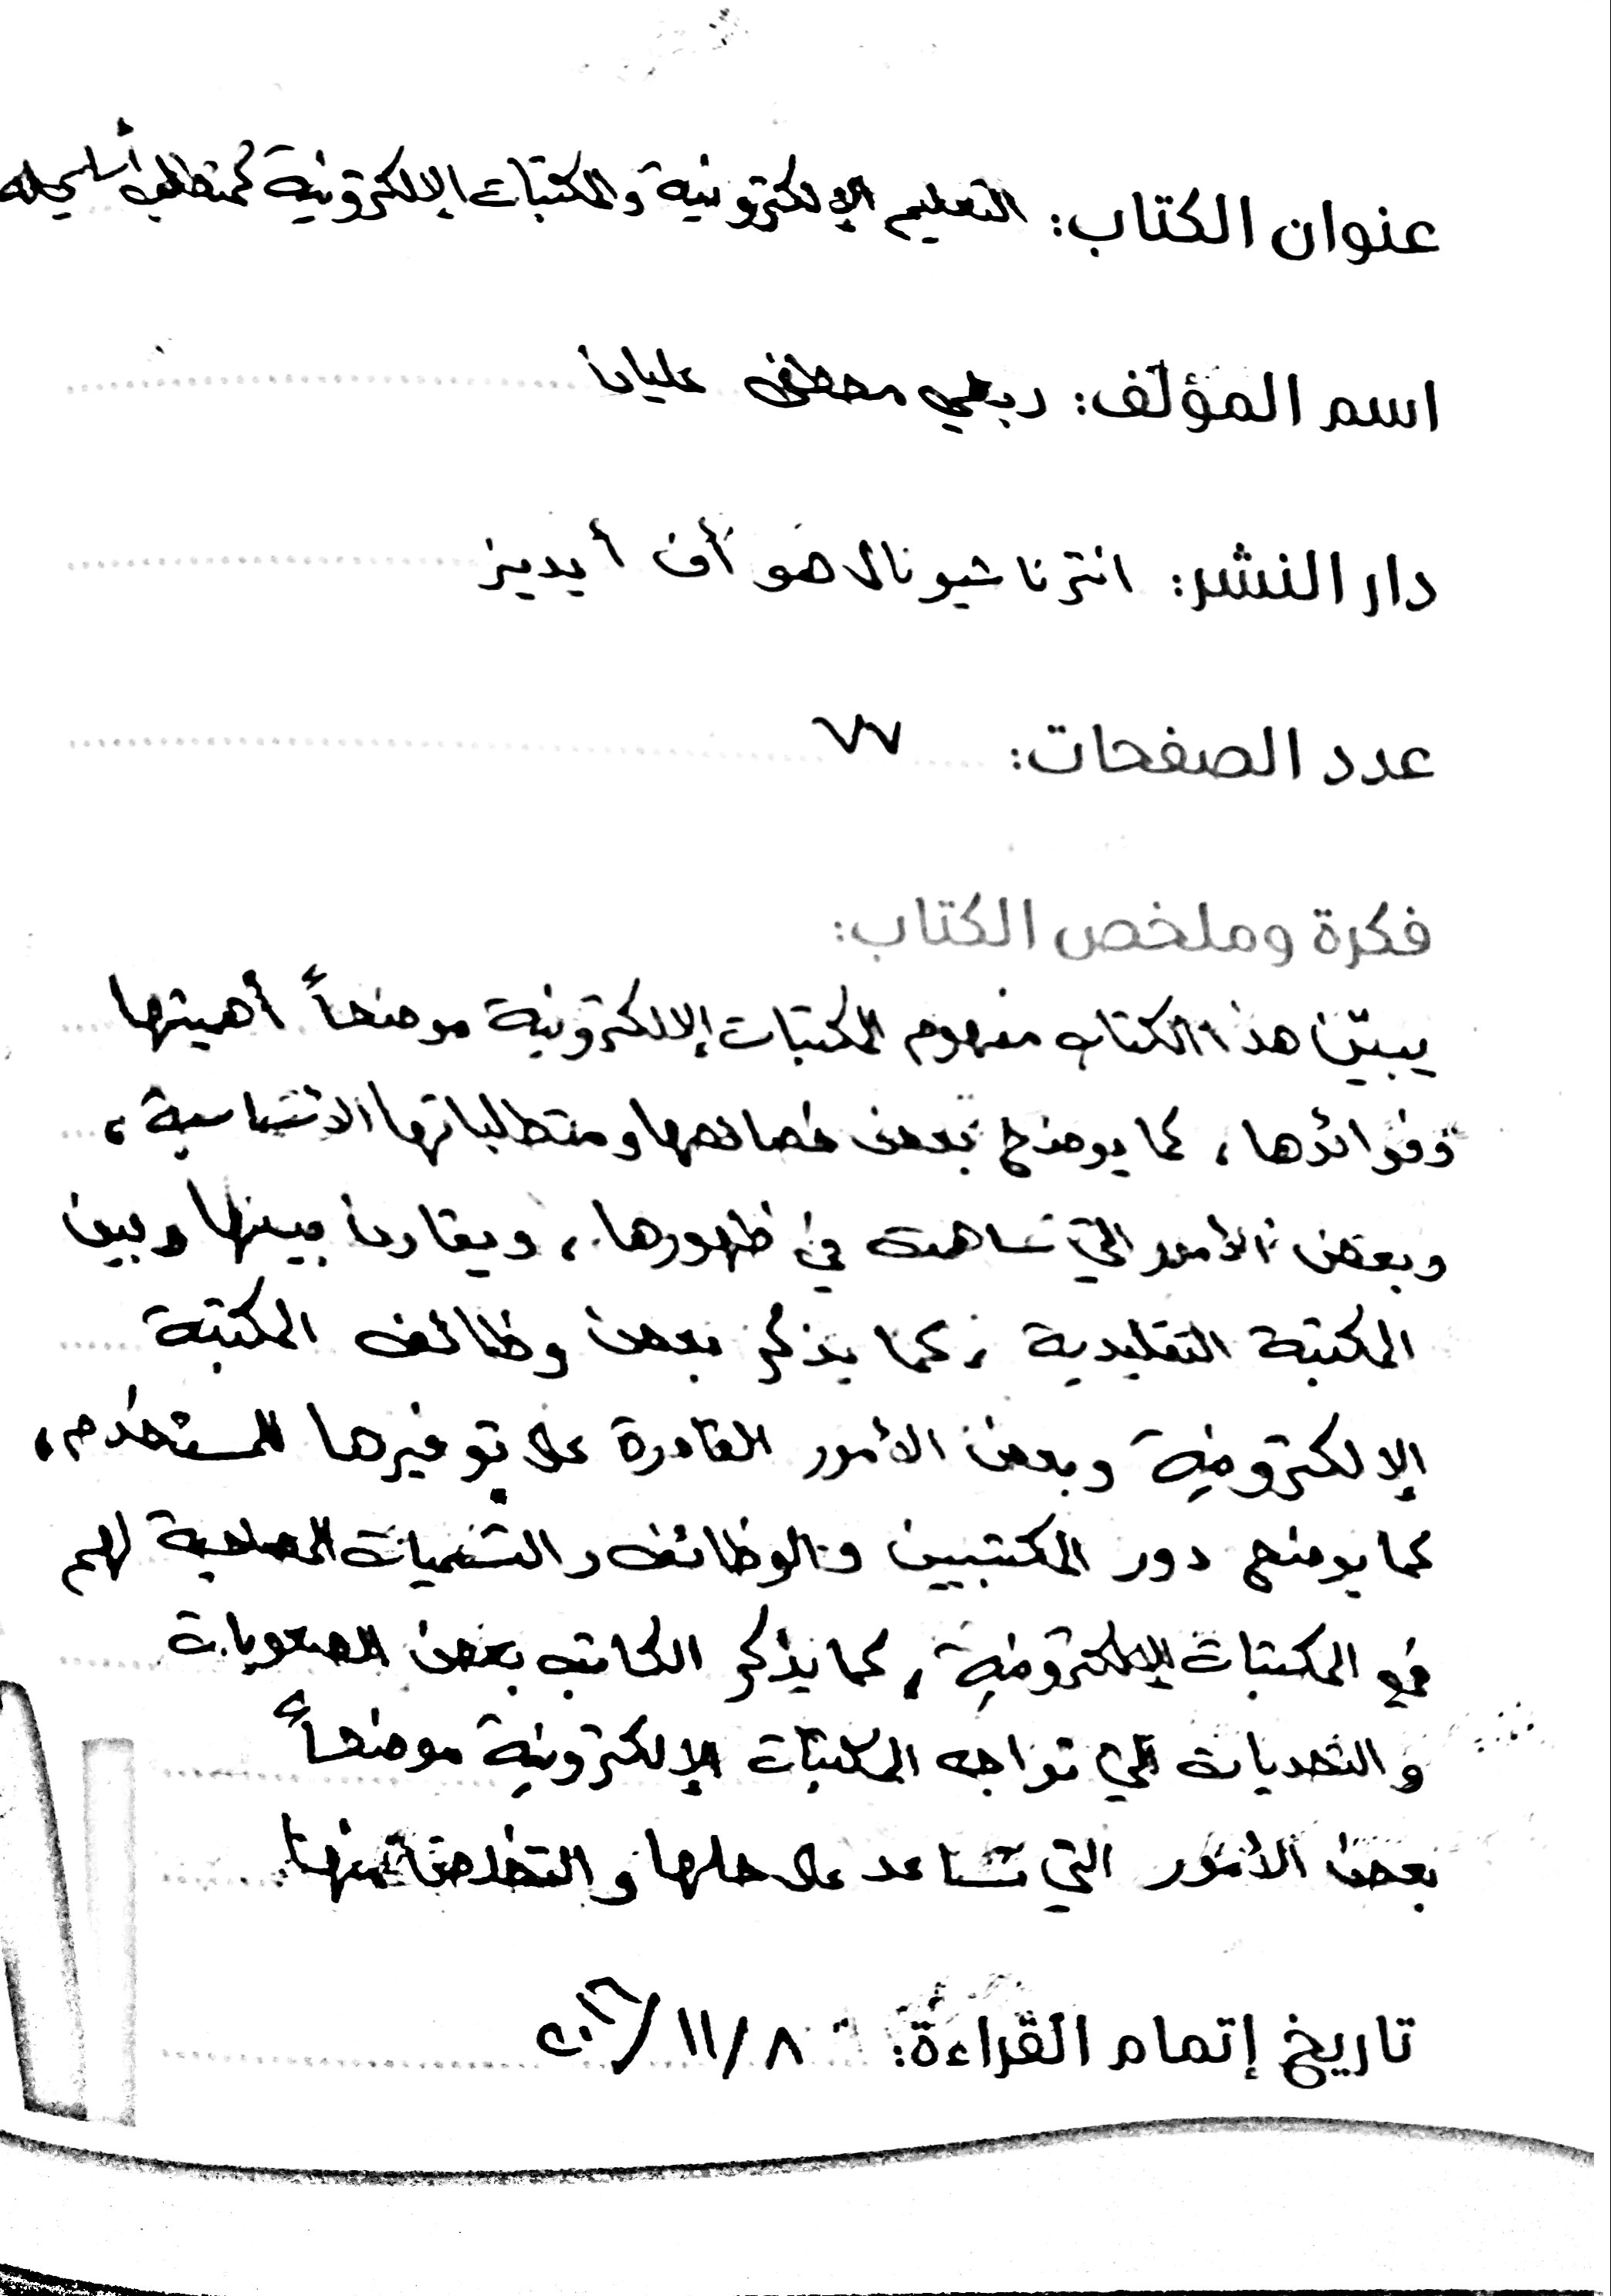 عنوان الكتاب: التعليم الإلكترونية والمكتبات الإلكترونية كمتطلب
اسم المؤلف: ربحي مصطفى عليان
دار النشر: انترناشيونال هو أف أيديز
عدد الصفحات: ٧٧
فكرة وملخص الكتاب:
يبيّن هذا الكتاب مفهوم المكتبات الإلكترونية موضحاً أهميتها
وفوائدها، كما يوضح بعض خصائصها ومتطلباتها الاساسية،
وبعض الأمور التي ساهمت في ظهورها، ويقارن بينها وبين
المكتبة التقليدية، كما يذكر بعض وظائف المكتبة
الإلكترونية وبعض الأمور القادرة على توفيرها للمستخدم،
كما يوضح دور المكتبيين والوظائف والتسميات لهم
في المكتبات الإلكترونية، كما يذكر الكاتب بعض الصعوبات
والتحديات التي تواجه المكتبات الإلكترونية موضحاً
بعض الأمور التي تساعد على حلها والتخلص منها
تاريخ إتمام القراءة: ٨/١١/